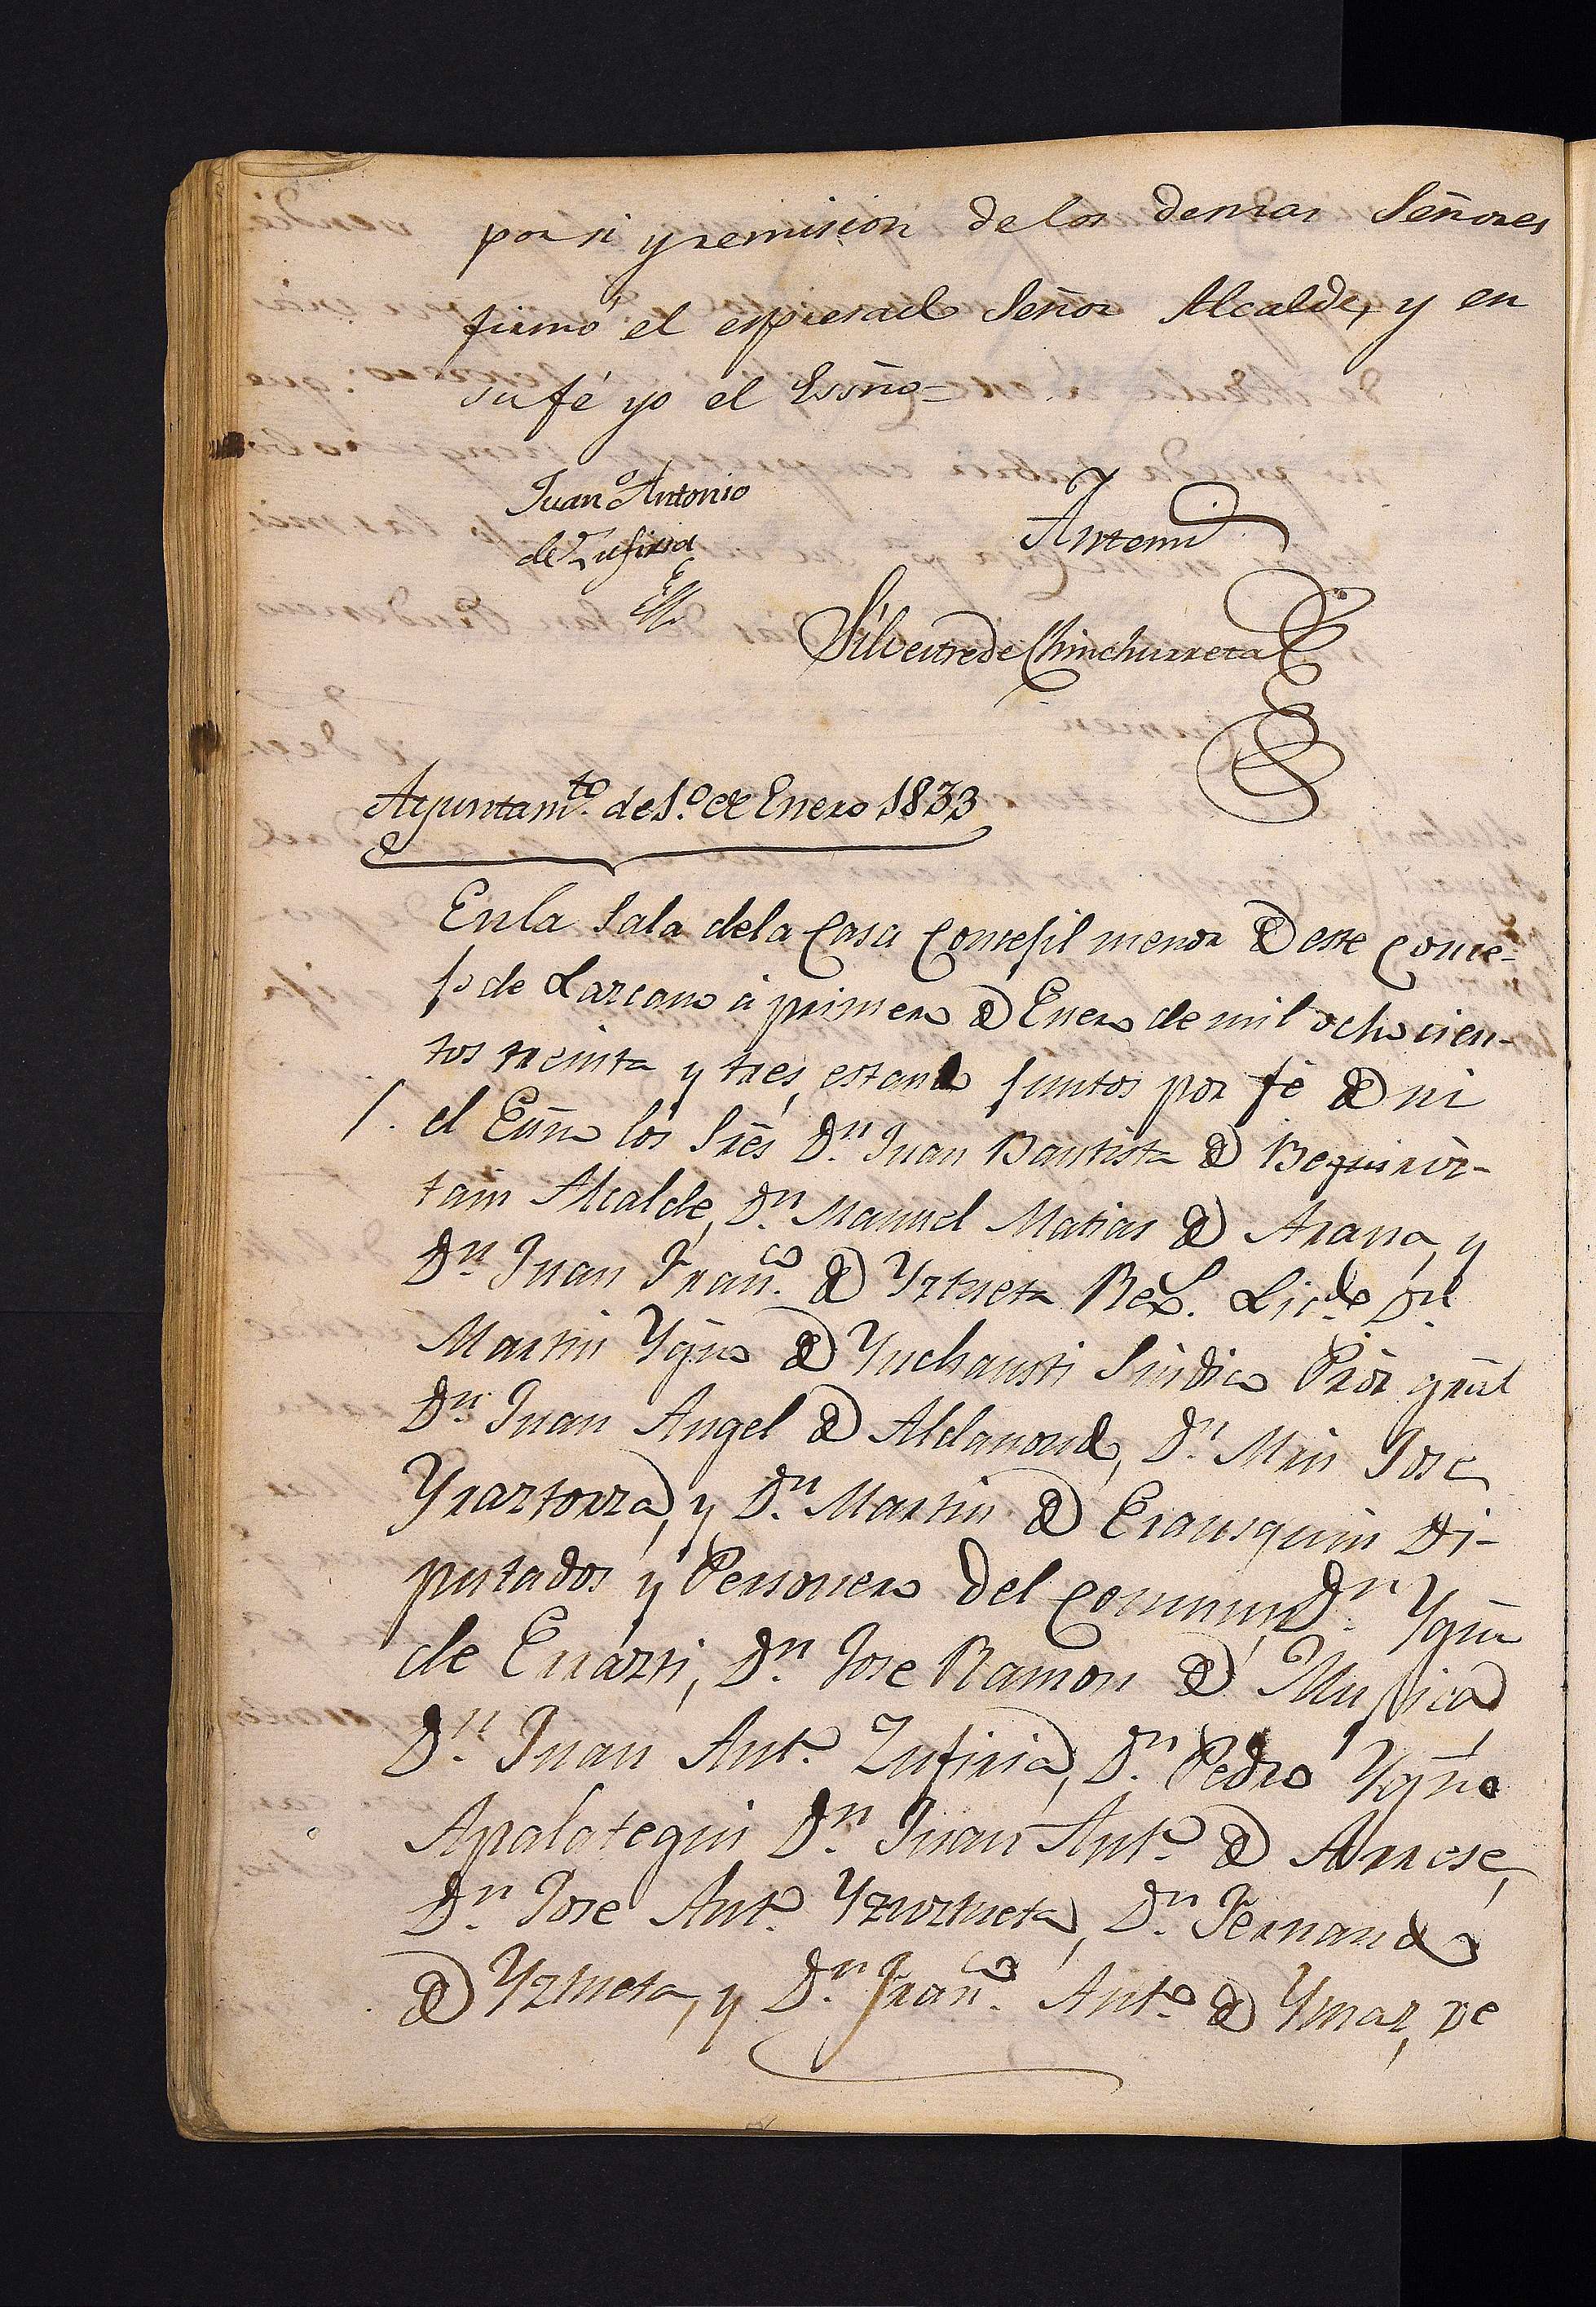 por si y remision de los demas Señores
firmó el espresado Señor Alcalde, y en
su fé yo el Essño=
Juan Antonio
de Zufiria
Antemi
Silvestre de Chinchurreta
Ayuntamto. de 1.º de Enero 1833
En la Sala de la Casa Concejil menor de este Conce-
jo de Lazcano á primero de Enero de mil ochocien-
tos treinta y tres, estando juntos por fé de mi
el Essno los Sres Dn. Juan Bautista de Beguiris-
tain Alcalde, Dn. Manuel Matias de Arana, y
Dn. Juan Franco. de Yztueta Licdo Dn
Martin Ygno de Ynchausti Sindico Pror gral
Dn. Juan Angel de Aldanondo, Dn. Mrn Jose
Yraztorza, y Dn. Martin de Erausquin Di-
putados y Personero del comun, Dn. Ygno
de Dn. Jose Ramon de Mujica
Dn. Juan Anto. Zufiria, Dn. Pedro Ygno
Apalategui Dn. Juan Anto. de Arrese,
Dn. Jose Anto. Yzurtueta, Dn. Fernando
de Yztueta, y Dn. Franco. Anto. de Ymaz, ve